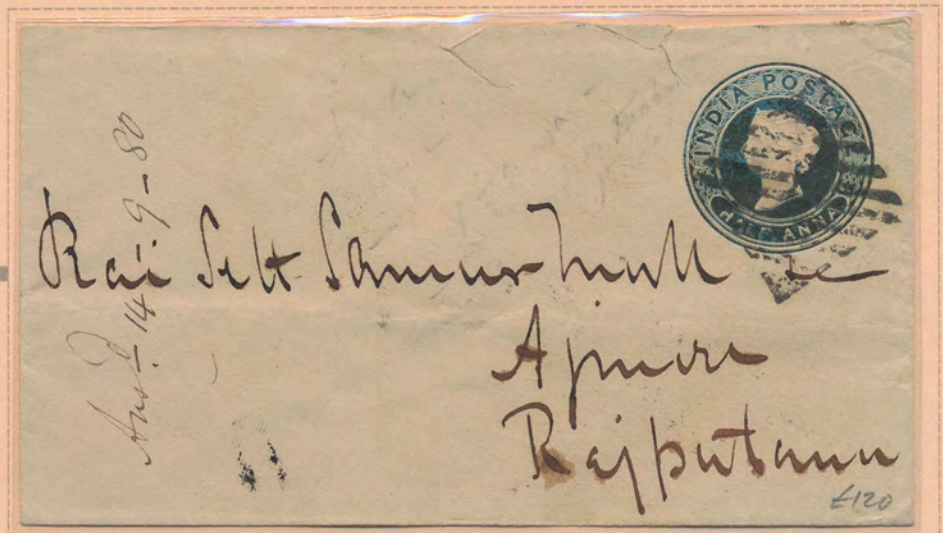 INDIA POSTAGE
HALF ANNA
Ansd 14-9-80
Rai Seth Sameer Mull
Ajmere
Rajputana
£120